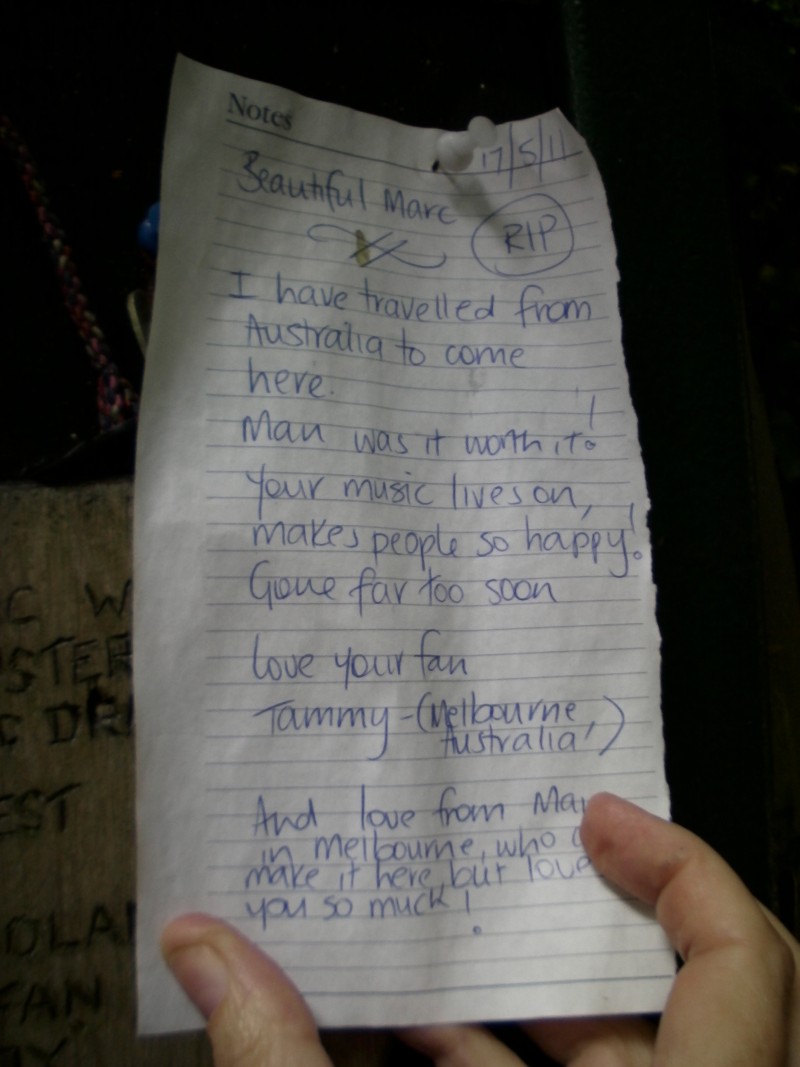 Notes
17/5/11
Beautiful Marc
RIP
I have travelled from
Australia to come
here.
Man was it worth it!
Your music lives on,
makes people so happy!
Gone far too soon
Love your fan
Tammy - (Melbourne,
Australia)
And love from
in Melbourne, who
make it here but love
you so much!
EST
FAN